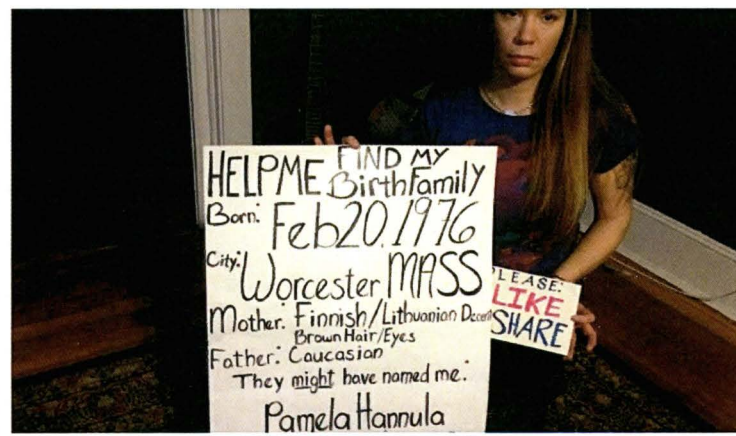 HELP ME FIND MY
Birth Family
Born: Feb 20, 1976
City: Worcester MASS
Mother: Finnish/Lithuanian Decent
Brown Hair/Eyes
Father: Caucasian
They might have named me:
Pamela Hannula
PLEASE:
LIKE
SHARE